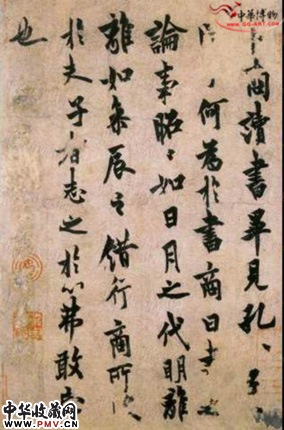 商讀書畢見孔〻子〻
何為於書商曰書之
論事昭〻如日月之代明離
離如參辰之錯行商所
於夫子者志之於心弗敢忘
也
中華博物
WWW.GG-ART.COM
中华收藏网
WWW.PMV.CN